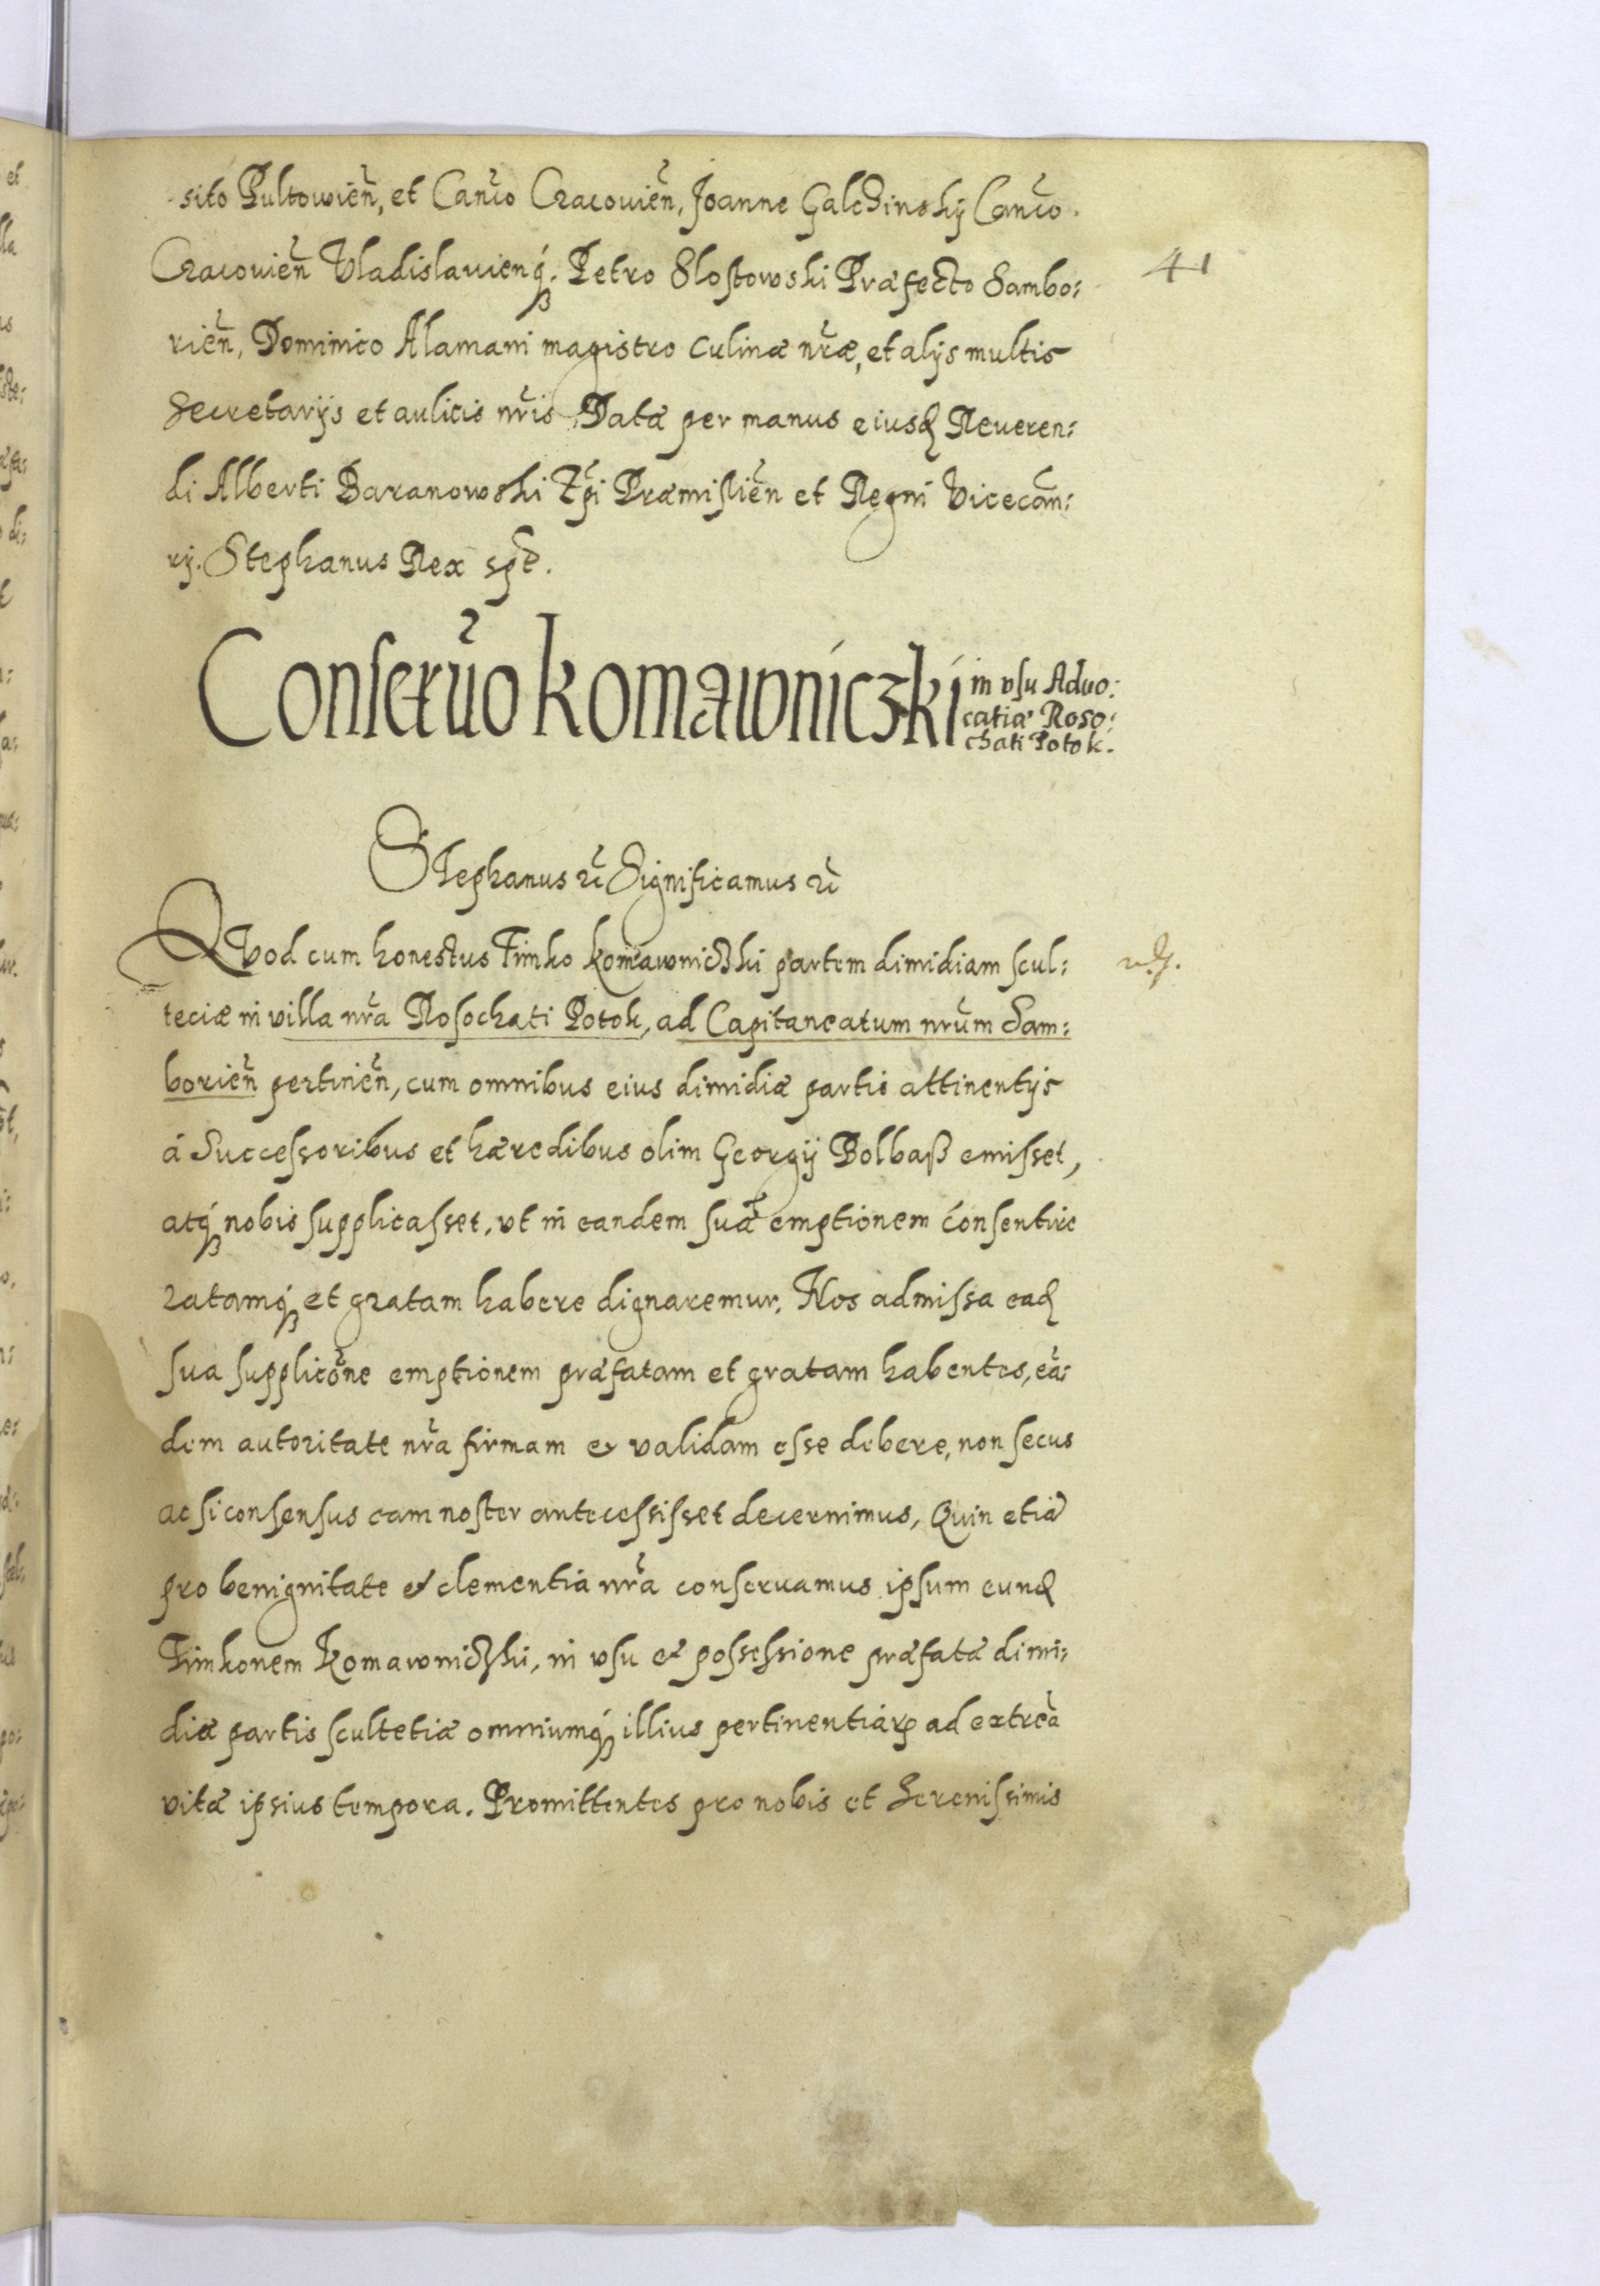 sito Pultowien̄, et Can̄co Cracouien̄, Joanne Galczinskij Can̄co
Cracouien̄ Vladislauienq́ꝫ. Petro Slostowski Præfecto Sambo:
41
rien̄, Dominico Alamani magistro culinæ nr̄æ, et alijs multis
Secretarijs et aulicis nr̄is Datæ per manus eiusd Reueren:
di Alberti Baranowski Ep̄i Præmislien̄ et Regni Vicecan̄:
rij. Stephanus Rex sp̄t.
Conseruo Komawniczki
in vsu Aduo:
catiæ Roso:
chati Potok.
Stephanus etc̄ Significamus etc̄
Quod cum honestus Timko Komawniczki partem dimidiam scul:
teciæ in villa nr̄a Rosochati Potok, ad Capitaneatum nrūm Sam:
borien̄ pertinen̄, cum omnibus eius dimidiæ partis attinentijs
á Successoribus et hæredibus olim Georgij Bolbasz emisset,
atq́ꝫ nobis supplicasset, vt in eandem suā emptionem consentire
ratamq́ꝫ et gratam habere dignaremur. Nos admissa ead
sua supplicōne emptionem præfatam et gratam habentes, eā:
dem autoritate nr̄a firmam & validam esse debere, non secus
ac si consensus eam noster antecessisset decernimus, Quin etiā
pro benignitate & clementia nr̄a conseruamus ipsum eund
Timkonem Komawniczki, in vsu & possessione præfatæ dimi:
diæ partis scultetiæ omniumq́ꝫ illius pertinentiaꝝ ad extrēa
vitæ ipsius tempora. Promittentes pro nobis et Serenissimis